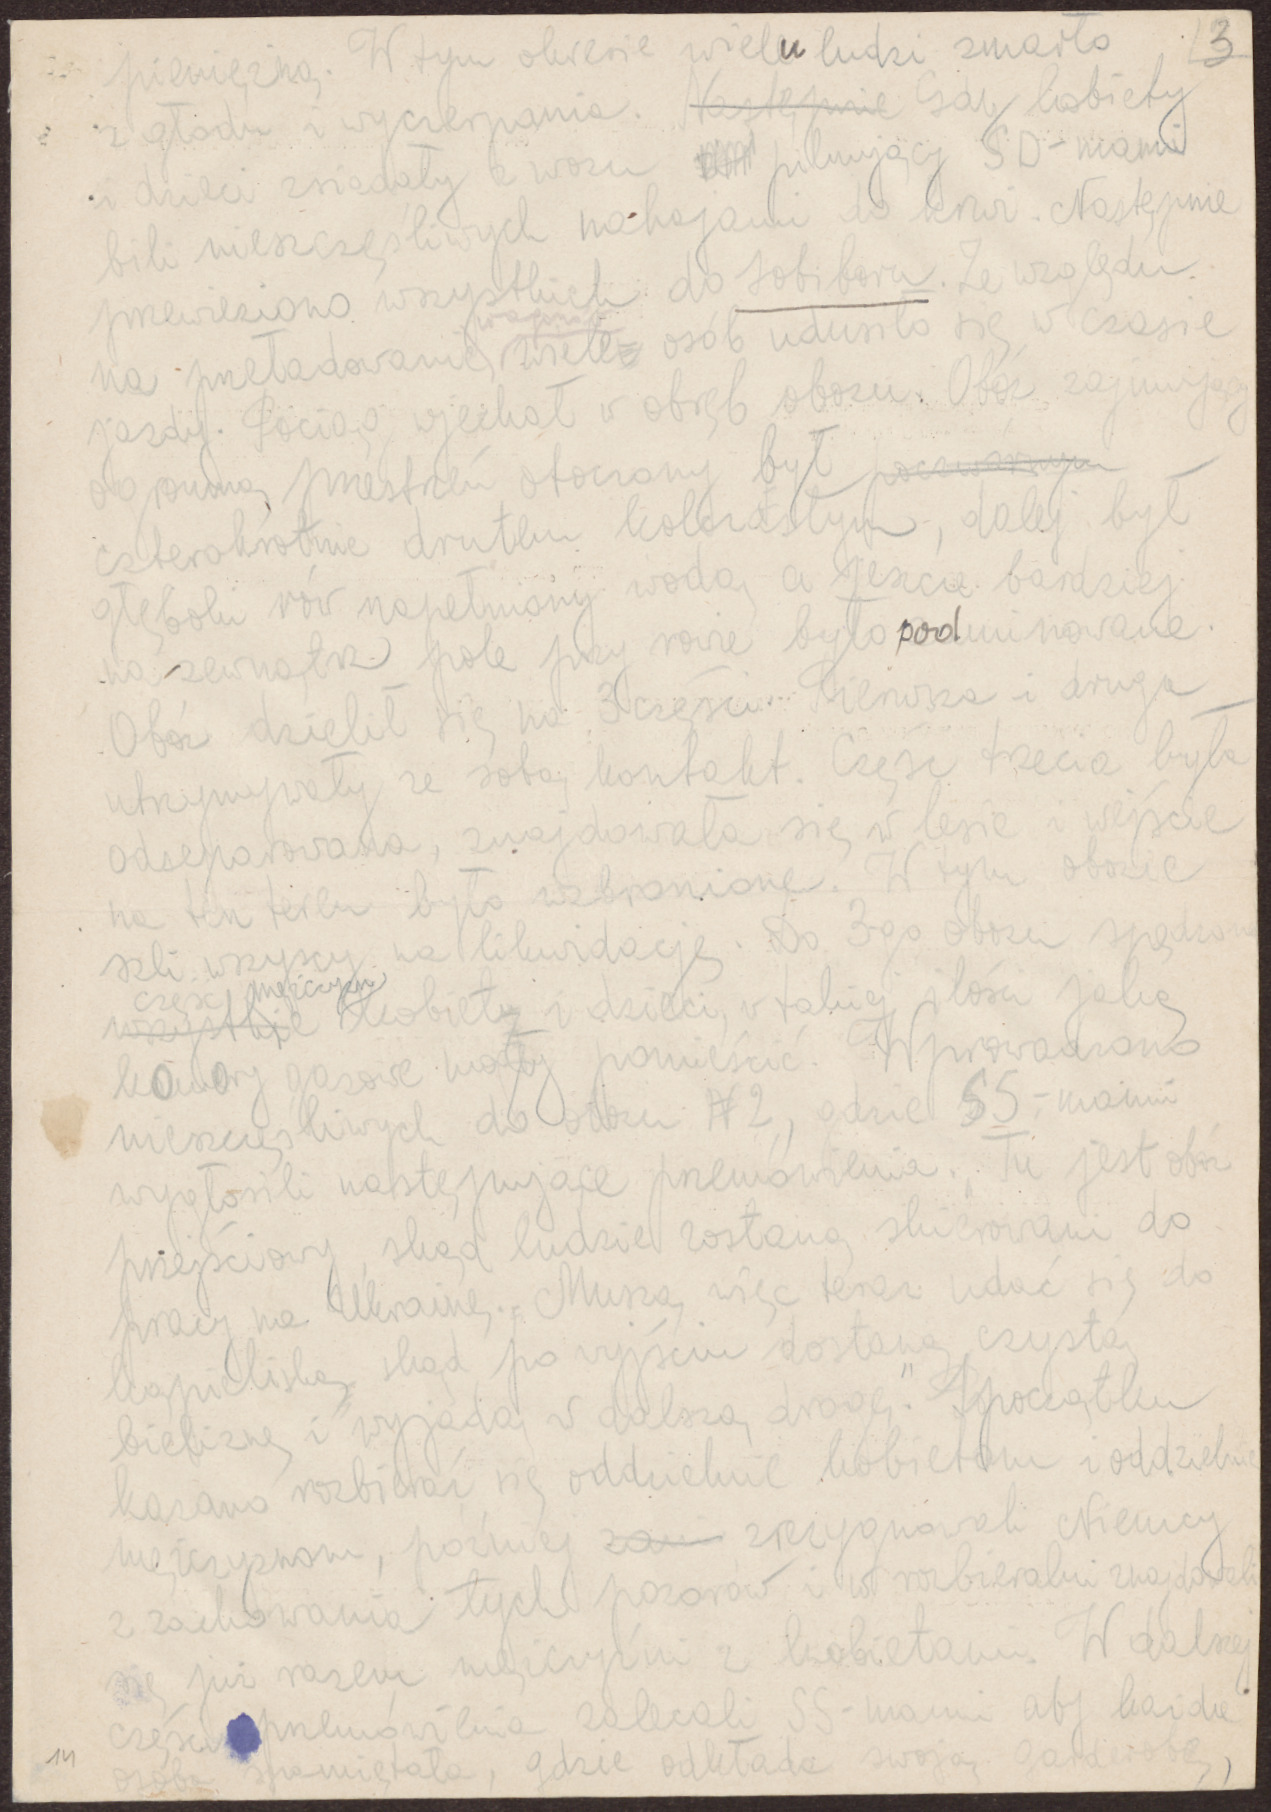 3
pieniężną. W tym okresie wielu ludzi zmarło
z głodu i wyczerpania. Następnie Gdy kobiety
i dzieci zsiadały z wozu pilnujący SD-mani
bili nieszczęśliwych nahajami do krwi. Następnie
przewieziono wszystkich do Sobiboru. Ze względu
na przeładowanie wagonów wiele osób udusiło się w czasie
jazdy. Pociąg wjechał w obręb obozu. Obóz zajmujący
ogromną przestrzeń otoczony był
czterokrotnie drutem kolczastym, dalej był
głęboki rów napełniony wodą a jeszcze bardziej
na zewnątrz pole przy rowie było podminowane.
Obóz dzielił się na 3 części. Pierwsza i druga
utrzymywały ze sobą kontakt. Część trzecia była
odseparowana, znajdowała się w lesie i wejście
na ten teren było wzbronione. W tym obozie
szli wszyscy na likwidację. Do 3-go obozu spędzono
część mężczyzn
wszystkie kobiety i dzieci, w takiej ilości jaką
komory gazowe mogły pomieścić. Wprowadzono
nieszczęśliwych do obozu № 2, gdzie SS-mani
wygłosili następujące przemówienia. „Tu jest obóz
przejściowy, skąd ludzie zostaną skierowani do
pracy na Ukrainę. Muszą więc teraz udać się do
kąpieliska, skąd po wyjściu dostaną czystą
bieliznę i wyjadą w dalszą drogę." Z początku
kazano rozbierać się oddzielnie kobietom i oddzielnie
mężczyznom, później zani zrezygnowali Niemcy
z zachowania tych pozorów i w rozbieralni znajdowali
się już razem mężczyźni z kobietami. W dalszej
części przemówienia zalecali SS-mani aby każda
osoba spamiętała, gdzie odkłada swoją garderobę,
14